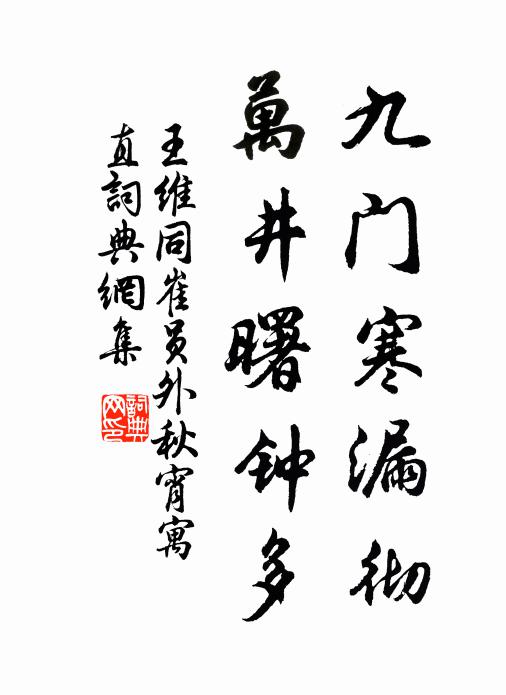 九门寒漏彻
萬井曙钟多
王維同崔员外秋宵寓
直詞典網集
詞典
网印